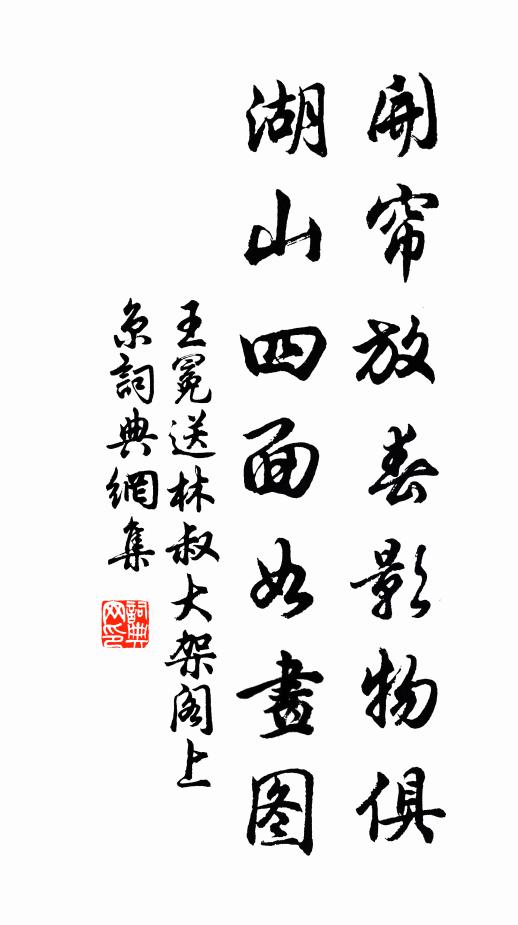 開帘放春影物俱
湖山四面如畫图
王冕送林叔大架阁上
京詞典網集
詞典网印